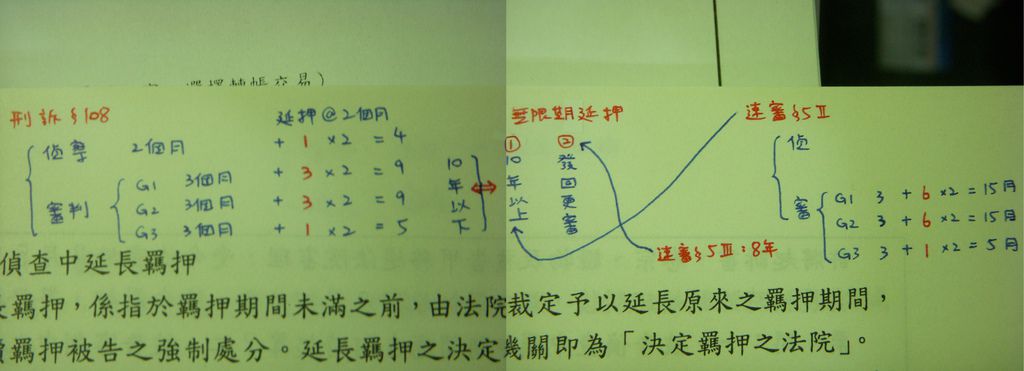 選擇轉帳交易)
刑訴§108 延押@2個月
偵導 2個月 + 1 ×2 = 4
審判 G1 3個月 + 3 ×2 = 9
G2 3個月 + 3 ×2 = 9
G3 3個月 + 1 ×2 = 5
10年以下
無限期延押
① 10年以上
② 發回更審
速審§5Ⅲ：8年
速審§5Ⅱ
偵
審 G1 3 + 6 ×2 = 15月
G2 3 + 6 ×2 = 15月
G3 3 + 1 ×2 = 5月
偵查中延長羈押
長羈押，係指於羈押期間未滿之前，由法院裁定予以延長原來之羈押期間，
續羈押被告之強制處分。延長羈押之決定機關即為「決定羈押之法院」。